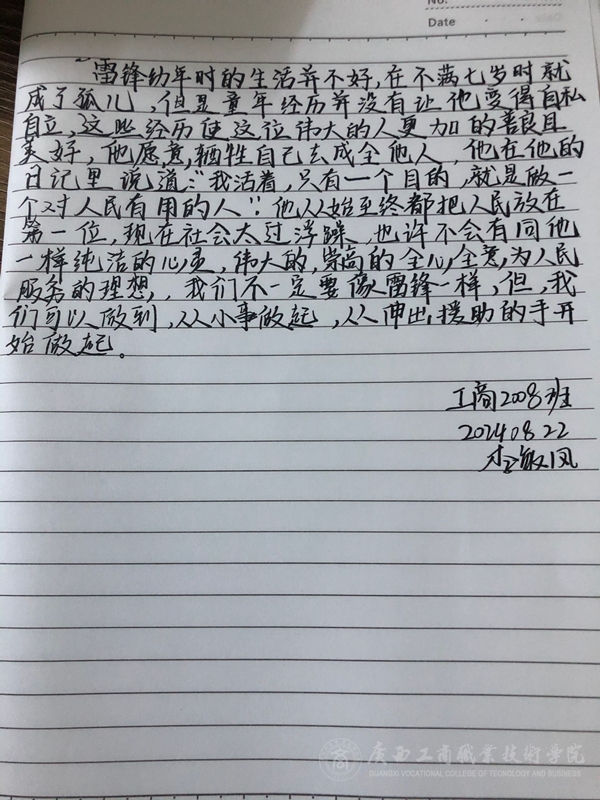 No.
Date
雷锋幼年时的生活并不好,在不满七岁时就
成了孤儿,但是童年经历并没有让他变得自私
自立,这些经历使这位伟大的人更加的善良且
美好,他愿意,牺牲自己去成全他人,他在他的
日记里说道:“我活着,只有一个目的,就是做一
个对人民有用的人”.他从始至终都把人民放在
第一位,现在社会太过浮躁,也许不会有同他
一样纯洁的心灵,伟大的,崇高的全心全意,为人民
服务的理想,我们不一定要像雷锋一样,但,我
们可以做到,从小事做起,从伸出援助的手开
始做起。
工商2008班
20240822
敏凤
廣西工商職業技術學院
GUANGXI VOCATIONAL COLLEGE OF TECNOLOGY AND BUSINESS